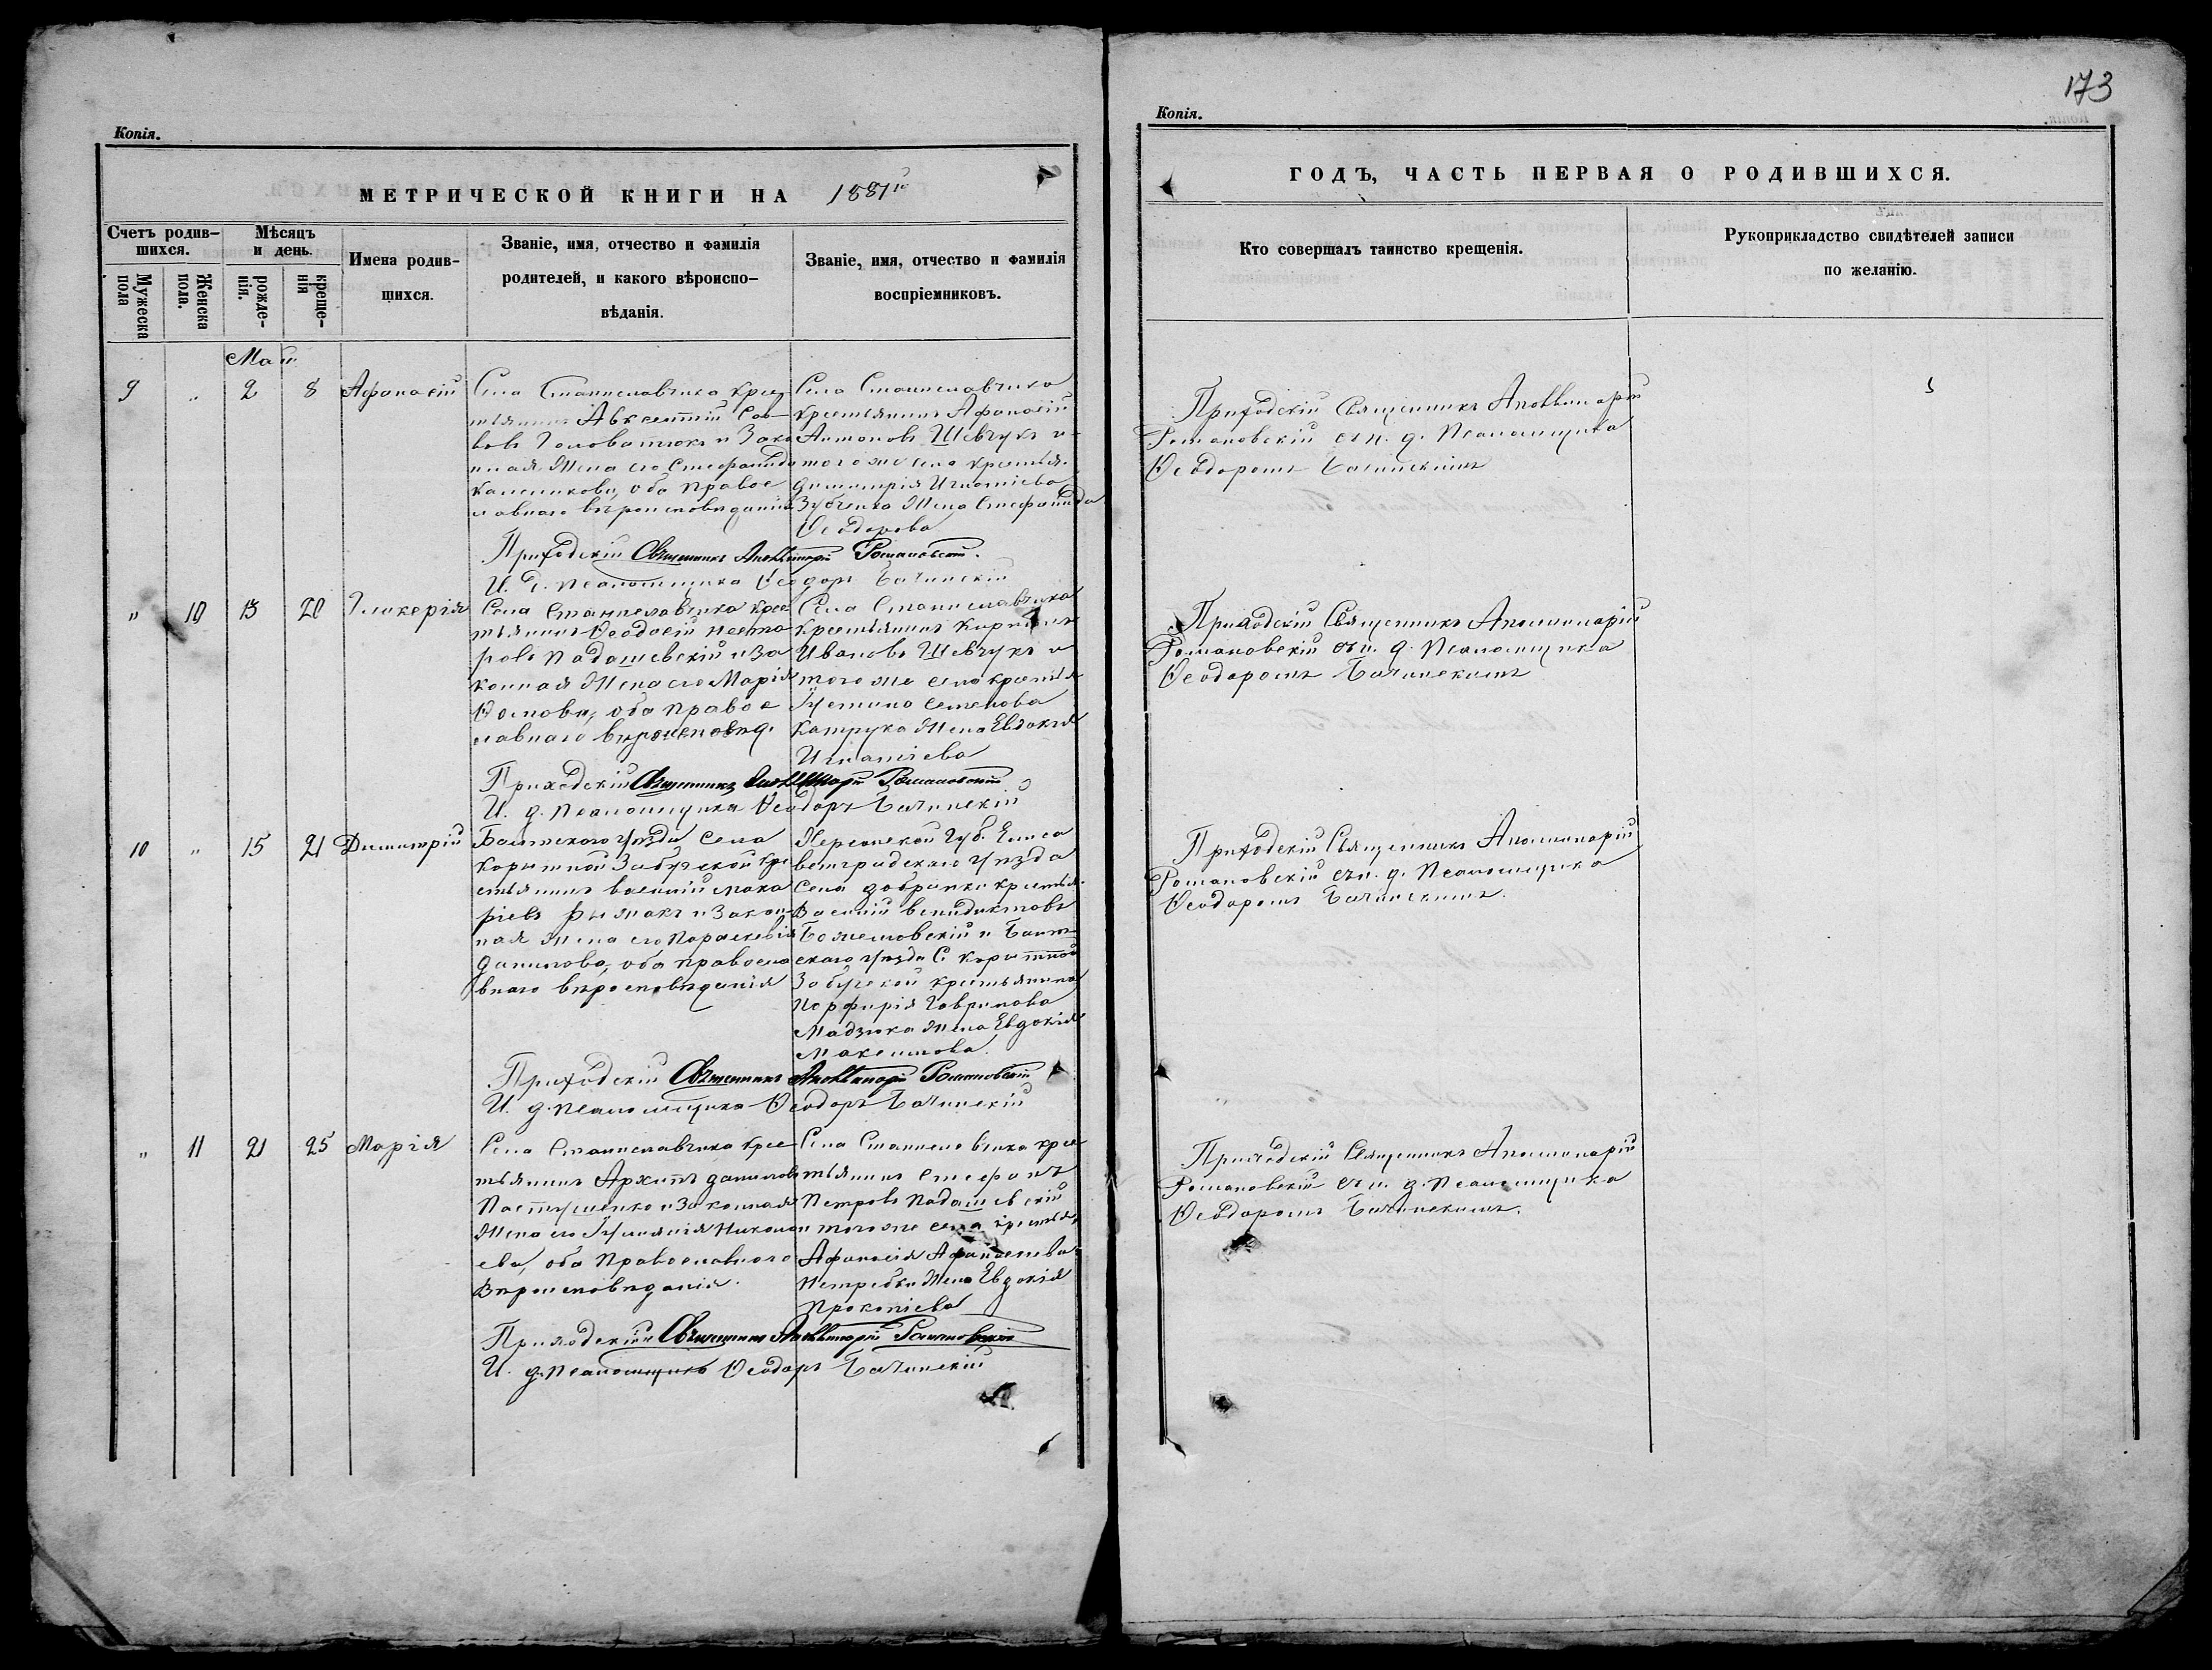 Копія.
МЕТРИЧЕСКОЙ КНИГИ НА 1881й
Счетъ родив-
шихся.
Мужеска
пола
Женска
пола.
Мѣсяцъ
и день.
рожде-
нія.
креще-
нія
Имена родив-
шихся.
Званіе, имя, отчество и фамилія
родителей, и какого вѣроиспо-
вѣданія.
Званіе, имя, отчество и фамилія
воспріемниковъ.
Май
9 " 2 8 Афанасій
Села Станиславчика крес
тьянинъ Авксентій Сав-
вовъ Головатюкъ и Зако
нная Жена его Стефанида
оба право
славнаго вѣроисповѣданія
Села Станиславчика
крестьянинъ Афанасій
Антоновъ Шевчукъ и
того же села крестья.
Димитрія Игнатіева
Зубченка Жена Стефанида
Ѳеодорова
Приходскій Священникъ Аполлинарій Романовскій.
И. д. Псаломщика Ѳеодоръ Бачинскій
" 10 13 20 Гликерія
Села Станиславчика крес
тьянинъ Ѳеодосій Несто
ровъ Подашевскій и За
конная Жена его Марія
оба право
славнаго вѣроисповѣд.
Села Станиславчика
крестьянинъ
Ивановъ Шевчукъ и
того же села крестья
Іустина Семенова
Катрука Жена Евдокія
Игнатіева
Приходскій Священникъ Аполлинарій Романовскій
И. д. Псаломщика Ѳеодоръ Бачинскій
10 " 15 21 Димитрій
Балтскаго уѣзда Села
Корытной Забугской кре
стьянинъ Василій Мака
ріевъ Рымакъ и Закон-
ная Жена его Параскевія
Данилова, оба правосла
внаго вѣроисповѣданія
Херсонской Губ. Елиса
ветградскаго уѣзда
Села Добрянки крестья.
Василій Венидиктовъ
и Балт-
скаго уѣзда С. Корытной
Забугской крестьянина
Порфирія Гаврилова
Мадзюка Жена Евдокія
Максимова.
Приходскій Священникъ Аполлинарій Романовскій
И. д. Псаломщика Ѳеодоръ Бачинскій
" 11 21 25 Марія
Села Станиславчика крес
тьянинъ Архипъ Даниловъ
Пастушенко и Законная
Жена его Іуліанія Никола
ева, оба Православнаго
Вѣроисповѣданія.
Села Станиславчика крес
тьянинъ Стефанъ
Петровъ Подашевскій
и того же села крестья.
Афанасія Афанасьева
Нетребки Жена Евдокія
Прокопіева
Приходскій Священникъ Аполлинарій Романовскій
И. д. Псаломщика Ѳеодоръ Бачинскій
173
Копія.
ГОДЪ, ЧАСТЬ ПЕРВАЯ О РОДИВШИХСЯ.
Кто совершалъ таинство крещенія.
Рукоприкладство свидѣтелей записи
по желанію.
Приходскій Священникъ Аполлинарій
Романовскій съ и. д. Псаломщика
Ѳеодоромъ Бачинскимъ
Приходскій Священникъ Аполлинарій
Романовскій съ и. д. Псаломщика
Ѳеодоромъ Бачинскимъ
Приходскій Священникъ Аполлинарій
Романовскій съ и. д. Псаломщика
Ѳеодоромъ Бачинскимъ.
Приходскій Священникъ Аполлинарій
Романовскій съ и. д. Псаломщика
Ѳеодоромъ Бачинскимъ.